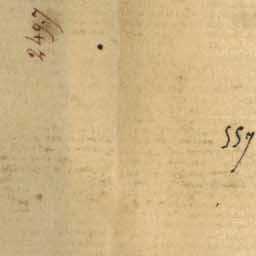 2497
557